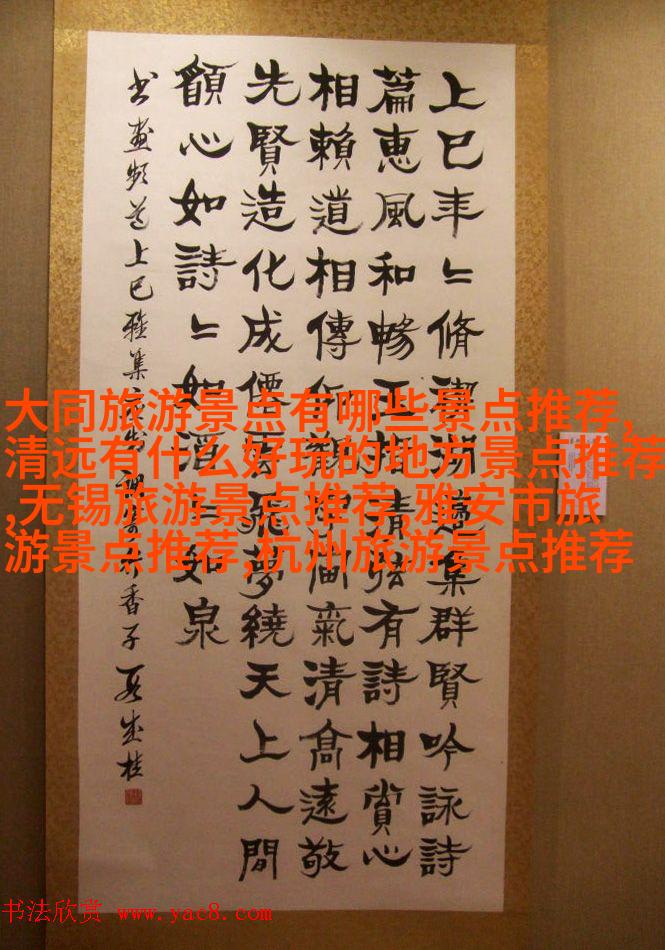 上巳年〻脩禊湖邊集群賢吟詠詩
篇惠風和暢正相清有詩相賞心
相賴道相傳仰觀宇宙氣清高遠敬
先賢造化成僊飛夢繞天上人間
願心如詩〻如酒〻如泉
書畫頻道上巳雅集香子桂
大同旅游景点有哪些景点推荐,
清远有什么好玩的地方景点推荐
,无锡旅游景点推荐,雅安市旅
游景点推荐,杭州旅游景点推荐
书法欣赏 www.yac8.com